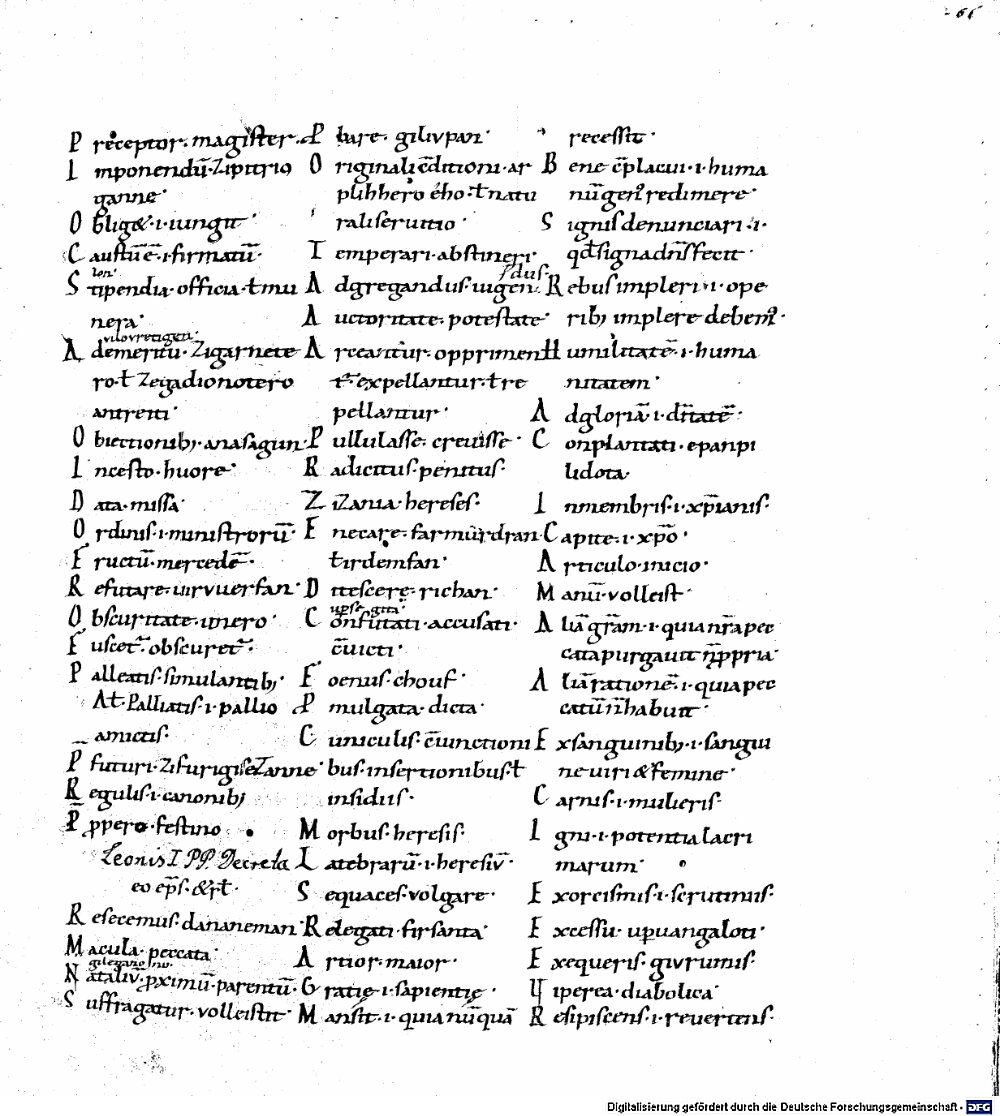 66
P receptor. magister.
I mponendū. Zipurio
ganne.
O blig&. i. iungit.
C austū ē. i. firmatū.
len.
S tipendia. officia. ł mu
nera.
vilovretigen.
A demeritu. Zigarnete
ro. ł Zegadionotero
antreiti.
O biectionib; anasagun
I ncesto. huore.
D ata. missa.
O rdinis. i. ministrorū.
F ructū. mercedē.
R efutare. uirvuerfan.
O bscuritate. unero.
F uscet. obscuret.
P alleatis. simulantib;
At. Palliatis. i. pallio
amictis.
P futuri. Zifurigisezanne.
R egulis. i. canonib;
P ppero. festino.
Leonis I PP. Decreta
eo ep̄s. &rł.
R esecemus. dananeman.
M acula. peccata.
gilegano
N ataliū. pximū. parentū.
S uffragatur. volleistit.
P bare. gilivpan.
O riginali c̄ditioni. ar
plihhero
ého. ł natu
rali seruitio.
T emperari. abstineri.
sdus.
A dgregandus. uigen
A uctoritate. potestate.
A rceantur. opprimen
t. expellantur. ł re
pellantur.
P ullulasse. creuisse.
R adicitus. penitus.
Z iZania. hereses.
E necare. farmurdran
ł irdemfan.
D itescere. richan.
C onfutati. accusati.
c̄uicti.
F oenus. chouf.
P mulgata. dicta.
C uniculis. c̄iunctioni
bus. insertionibus. ł
insidiis.
M orbus. heresis.
L atebrarū. i. heresiū.
S equaces. volgare.
R elegati. firsanta.
A rtior. maior.
G ratię. i. sapientię.
M ansit. i. quia nūquā
recessit.
B ene c̄placui. i. huma
nū gen' redimere.
S ignis denunciari. i.
qd signa dn̄s fecit.
R ebus impleri. i. ope
rib; implere debem'.
H umilitatē. i. huma
nitatem.
A d gloriā. i. ditatē.
C onplantati. epanpi
lidota.
I n membris. i. xp̄ianis.
C apite. i. xp̄o.
A rticulo. inicio.
M anū. volleist.
A liā gr̄am. i. quia nr̄a pec
cata purgauit
A liā rationē. i. quia pec
catū n̄ habuit.
E x sanguinib; i. sangui
ne uiri & femine.
C arnis. i. mulieris.
I gni. i. potentia lacri
marum.
E xorcismis. i. scrutiniis.
E xcessu. upuangaloti.
E xequeris. givrumis.
V iperea. diabolica.
R esipiscens. i. reuertens.
Digitalisierung gefördert durch die Deutsche Forschungsgemeinschaft - DFG